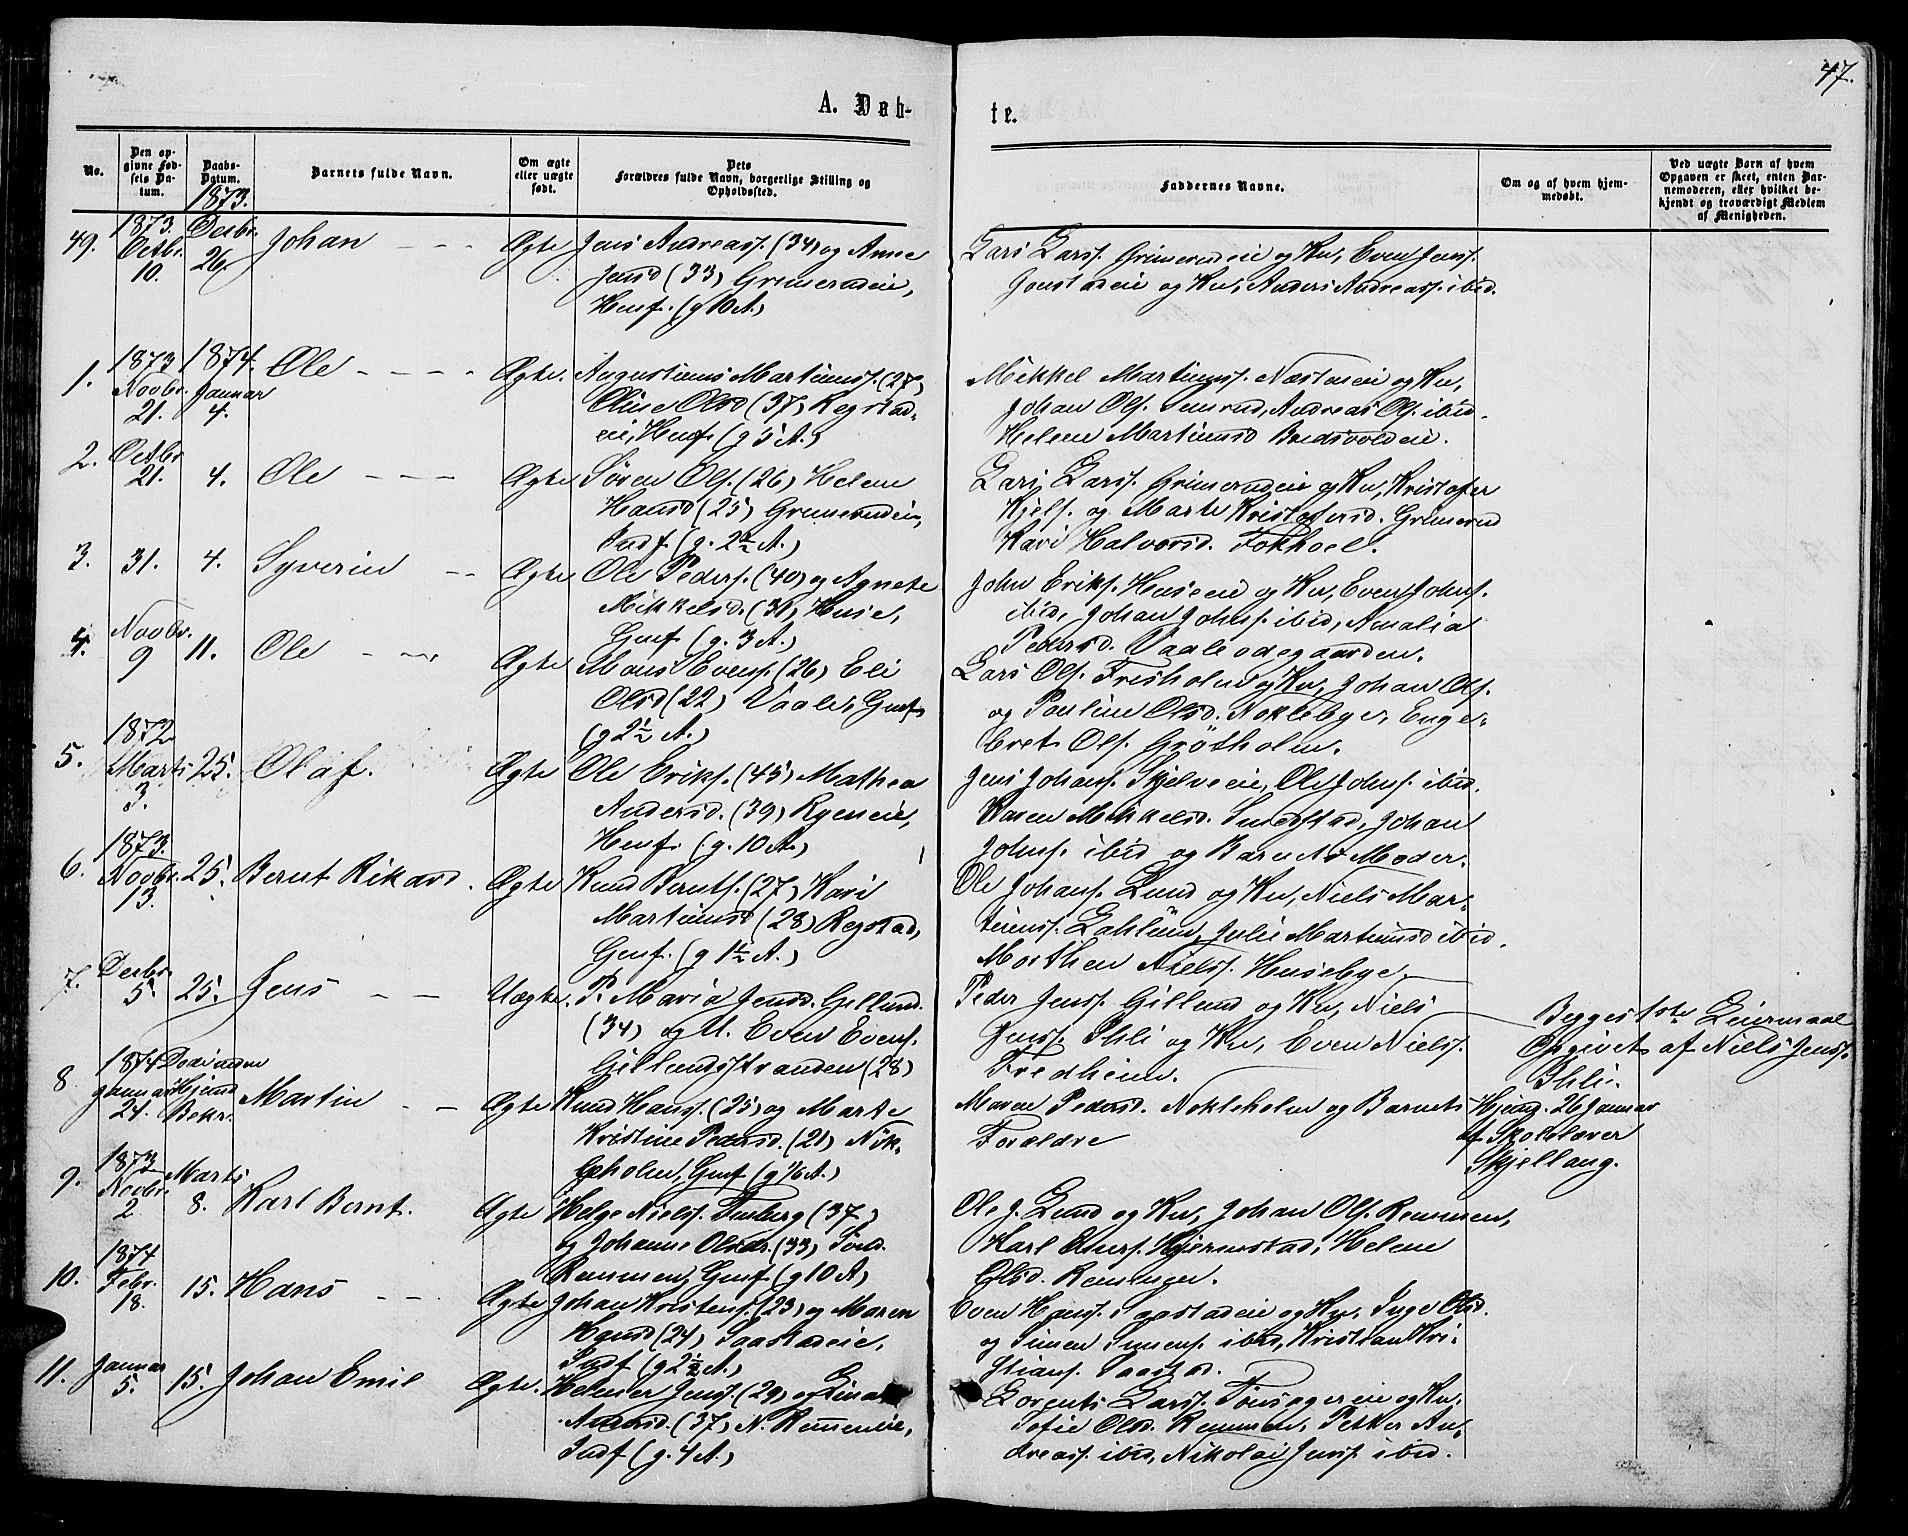 47.
A. Døb-
te.
No.
Den op-
givne Fød-
sels Da-
tum.
Daabs-
Datum.
Barnets fulde Navn.
Om ægte
eller uægte
født.
Dets
Forældres fulde Navn, borgerlige Stilling og
Opholdssted.
Faddernes Navne.
Om og af hvem hjem-
medøbt.
Ved uægte Barn af hvem
Opgaven er skeet, enten Bar-
nemoderen, eller hvilket be-
kjendt og troværdigt Medlem
af Menigheden.
1873.
49. 1873. Octbr. 10. Decbr. 26. Johan - - - Ægte Jens Andreass. (34) og Anne
Jensd (33) Grimerudeie,
Henf. (g 10 A.)
Lars Larss. Grimerudeie og Kn, Even Jenss.
Jonstadeie og Kn, Anders Andreass. ibid.
1. 1873 Novbr. 21. 1874. Januar 4. Ole - - - - Ægte. Augustinus Martinuss. (27)
Oline Olsd (37) Regstad-
eie, Henf. (g 5 A.)
Mikkel Martinuss. Næstaeie og Kn,
Johan Ols. Semrud, Andreas Ols. ibid.
Helene Martinusd Bredsvoldeie.
2. Octbr 21. 4. Ole - - - Ægte Søren Ols. (26) Helene
Hansd (25) Grimerudeie,
Indf (g. 2½ A.)
Lars Larss. Grimerudeie og Kn, Kristofer
Kjels. og Marte Kristofersd. Grimerud
Kari Halvorsd. Fokhoel.
3. 31. 4. Syverin - - Ægte Ole Peders. (40) og Agnete
Mikkelsd. (31) Huse,
Genf (g. 3 A.)
John Eriks. Huseeie og Kn, Even Johns.
ibid, Johan Johns. ibid, Amalia
Pedersd. Vaaleødegaarden.
4. Novbr. 9 11. Ole - - Ægte Mons Evens. (26) Eli
Olsd (22) Vaaler, Genf
(g 2½ A.)
Lars Ols. Fresholm og Kn, Johan Ols.
og Pauline Olsd. Noklebye, Enge-
bret Ols. Grötholm.
5. 1872 Marts 3. 25. Olaf. Ægte Ole Eriks. (45) Mathea
Andersd. (39) Ryeneie,
Henf. (g. 10 A.)
Jens Johans. Skjelveeie, Ole Johns. ibid.
Karen Mikkelsd. Smedstad, Johan
Johns. ibid og Barnets Moder.
6. 1873. Novbr. 13. 25. Bernt Rikard. Ægte Knud Bernts. (27) Kari
Martinusd (28) Regstad,
Genf. (g 1½ A.)
Ole Johans. Lund og Kn, Niels Mar-
tinuss. Dahlum, Julie Martinusd ibid.
Morthen Nielss. Husebye.
7. Decbr. 5. 25. Jens - - Uægte. P. Maria Jensd. Gillund.
(34) og U. Even Evens.
Gillundsstranden (28)
Peder Jenss. Gillund og Kn, Niels
Jenss. Ihli og Kn, Even Nielss.
Fredheim.
Begges 1ste Leiermaal
Opgivet af Niels Jenss.
Ihli.
8 1874 Januar 24. Døde inden Hjemd. Bekr. Martin - - Ægte Knud Hanss. (25) og Marte
Kristine Pedersd. (21) Nök-
leholm, Genf (g ½ A.)
Maren Pedersd. Nokleholm og Barnets
Forældre
Hjemd. 26 Januar
af Skolelærer
Skjellaug.
9. 1873 Novbr. 2. Marts 8. Karl Bernt. Ægte Helge Nielss. Furberg (37)
og Johanne Olsdr. (33) Sönd.
Remmen, Genf (g 10 A)
Ole J. Lund og Kn, Johan Ols. Remmen,
Karl Einars. Hjermstad, Helene
Olsd. Remmen.
10. 1874 Febr. 18. 15. Hans - - Ægte Johan Kristens. (23) og Maren
Hansd (24) Saastadeie,
Indf (g 2½ A.)
Even Hanss. Saastadeie og Kn, Inge Olsd.
og Simen Simens. ibid, Kristian Kri-
stians. Saastad.
11. Januar 5. 15. Johan Emil Ægte. Helmer Jenss. (29) og Lina
Andersd. (37) N. Remmeneie,
Indf (g. 4 A.)
Lorents Larss. Tönsagereie og Kn.
Sofie Olsd. Remmen, Petter An-
dreass. ibid, Nikolai Jenss. ibid.